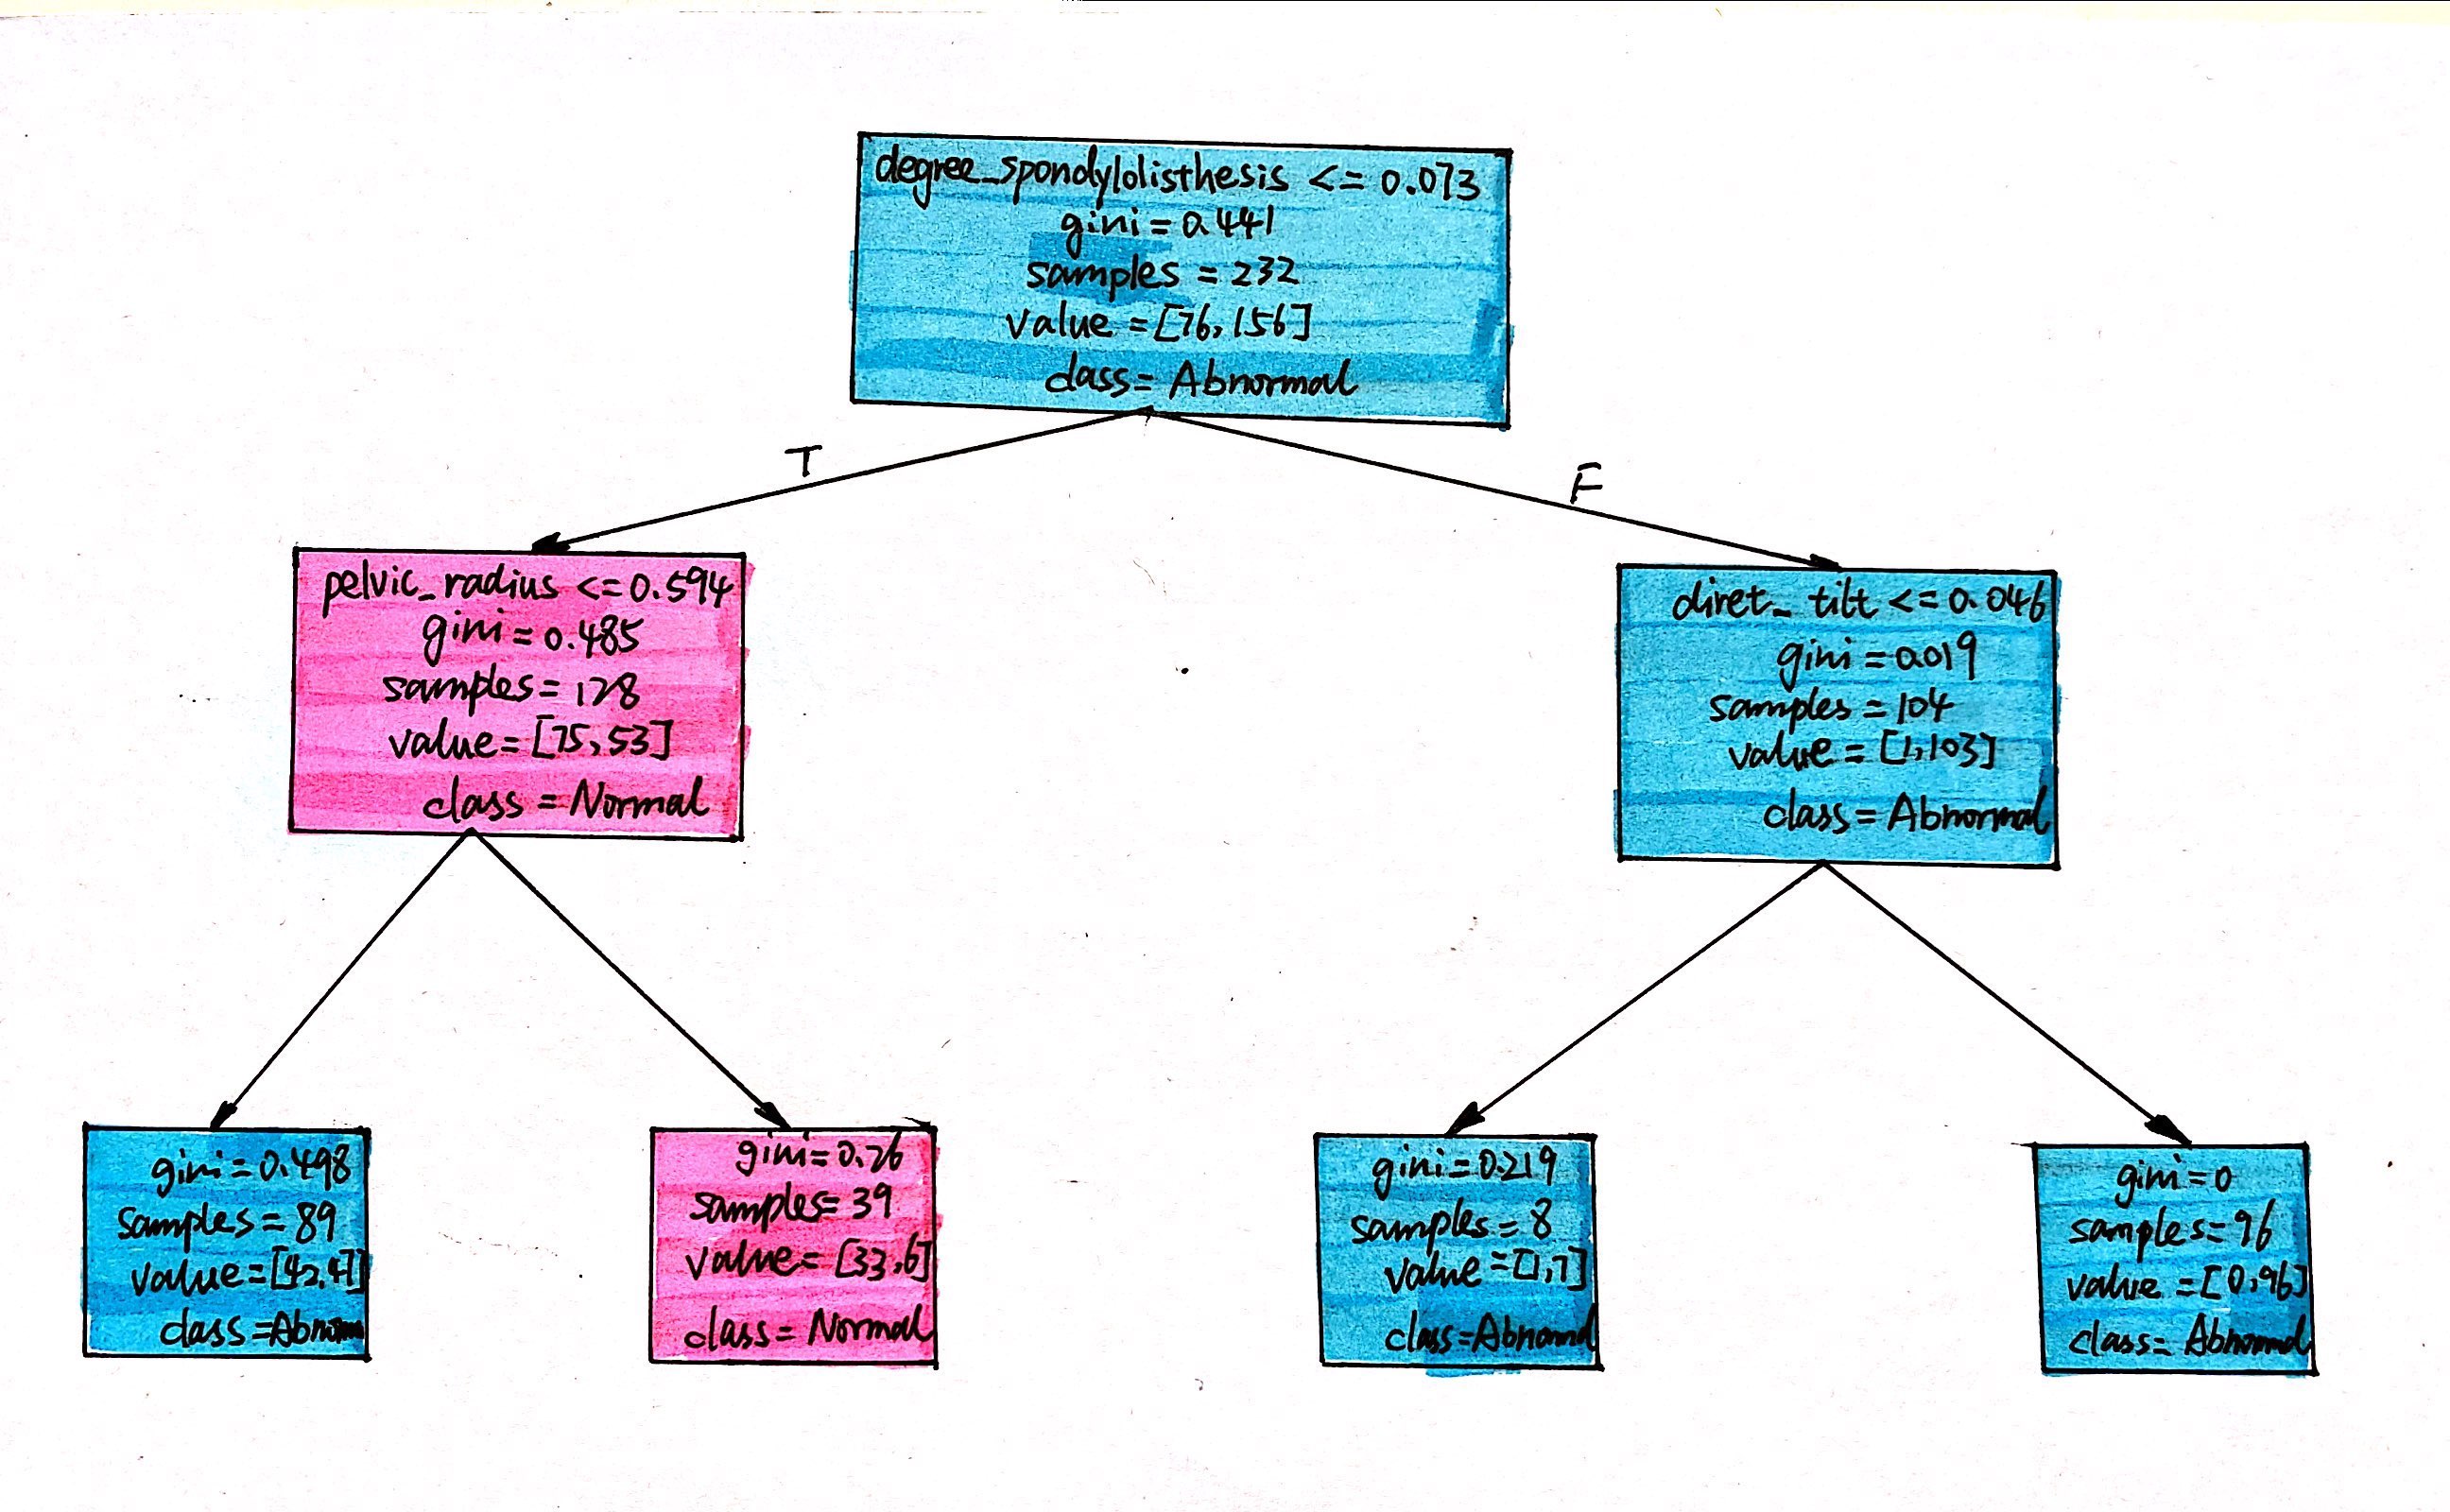 degree_spondylolisthesis <= 0.073
gini = 0.441
samples = 232
value = [76, 156]
class = Abnormal
T
F
pelvic_radius <= 0.594
gini = 0.485
samples = 128
value = [75, 53]
class = Normal
diret_ tilt <= 0.046
gini = 0.019
samples = 104
value = [1, 103]
class = Abnormal
gini = 0.498
samples = 89
value = [42, 47]
class = Abnorm
gini = 0.26
samples = 39
value = [33, 6]
class = Normal
gini = 0.219
samples = 8
value = [1, 7]
class = Abnormal
gini = 0
samples = 96
value = [0, 96]
class = Abnormal